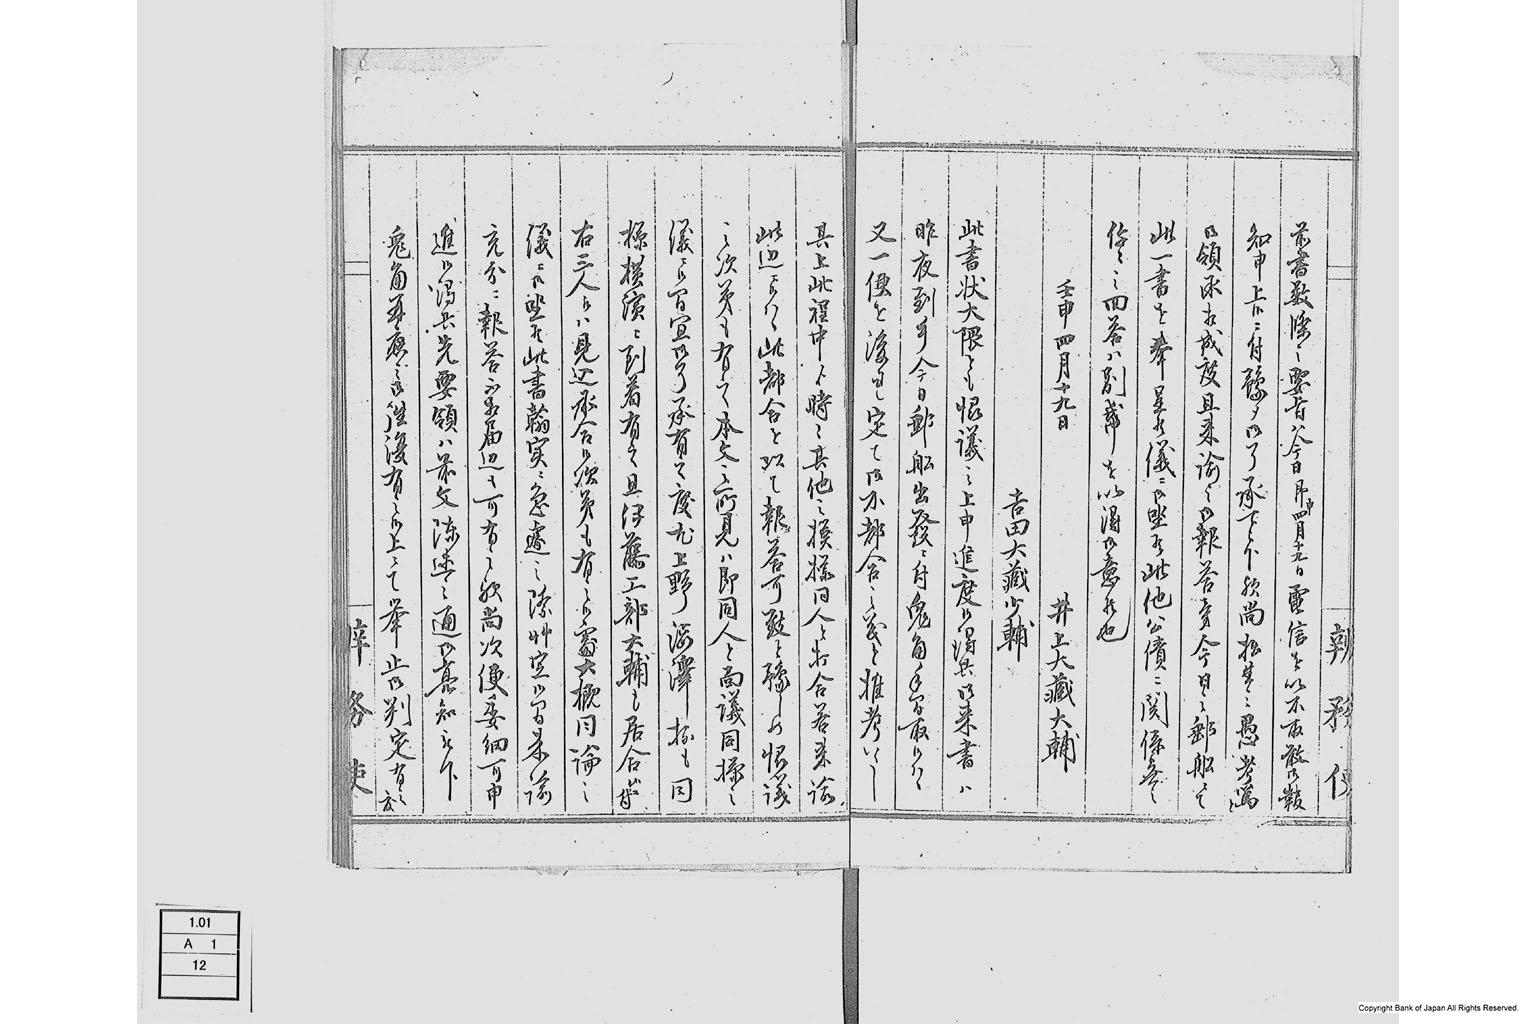 前書数條之要旨ハ今日即申四月十九日電信を以不取敢御報
知申上候ニ付豫メ御了承可被下候尚拙生之愚考篤と
御領承相成度且来諭之御報答旁今日之郵船にて
此一書を奉呈候儀ニ御坐候此他公債ニ関係無之
件々之回答ハ別帋を以得御意候也
壬申四月十九日
井上大藏大輔
吉田大藏少輔
此書状大隈とも恨議之上申進度候得共御来書ハ
昨夜到手今日郵船出發ニ付兎角手間取候ハヽ
又一便を後れし定て御不都合之義と推考いたし
其上此程中ゟ時々其他之模様同人と打合若来諭
此辺ニ候ハヽ此都合を以て報答可致と豫しめ恨議
之次第も有之本文之所見ハ即同人と尚議同様之
儀ニ候間宜御了承有之度尤上野渋澤抔も同
様横濱ニ到着有之且伊藤工部大輔も居合候ニ付
右三人にハ見込承合候次第も有之候處大概同論之
儀ニ御坐候此書翰実ニ急遽之際艸定候間来諭
充分ニ報答不相届辺も可有之候尚次便委細可申
進候得共先要領ハ前文陳述之通御亮知可被下候
兎角再應之御往復有之候上ニて挙止御判定有之度
辨務使
1.01
A 1
12
Copyright Bank of Japan All Rights Reserved.